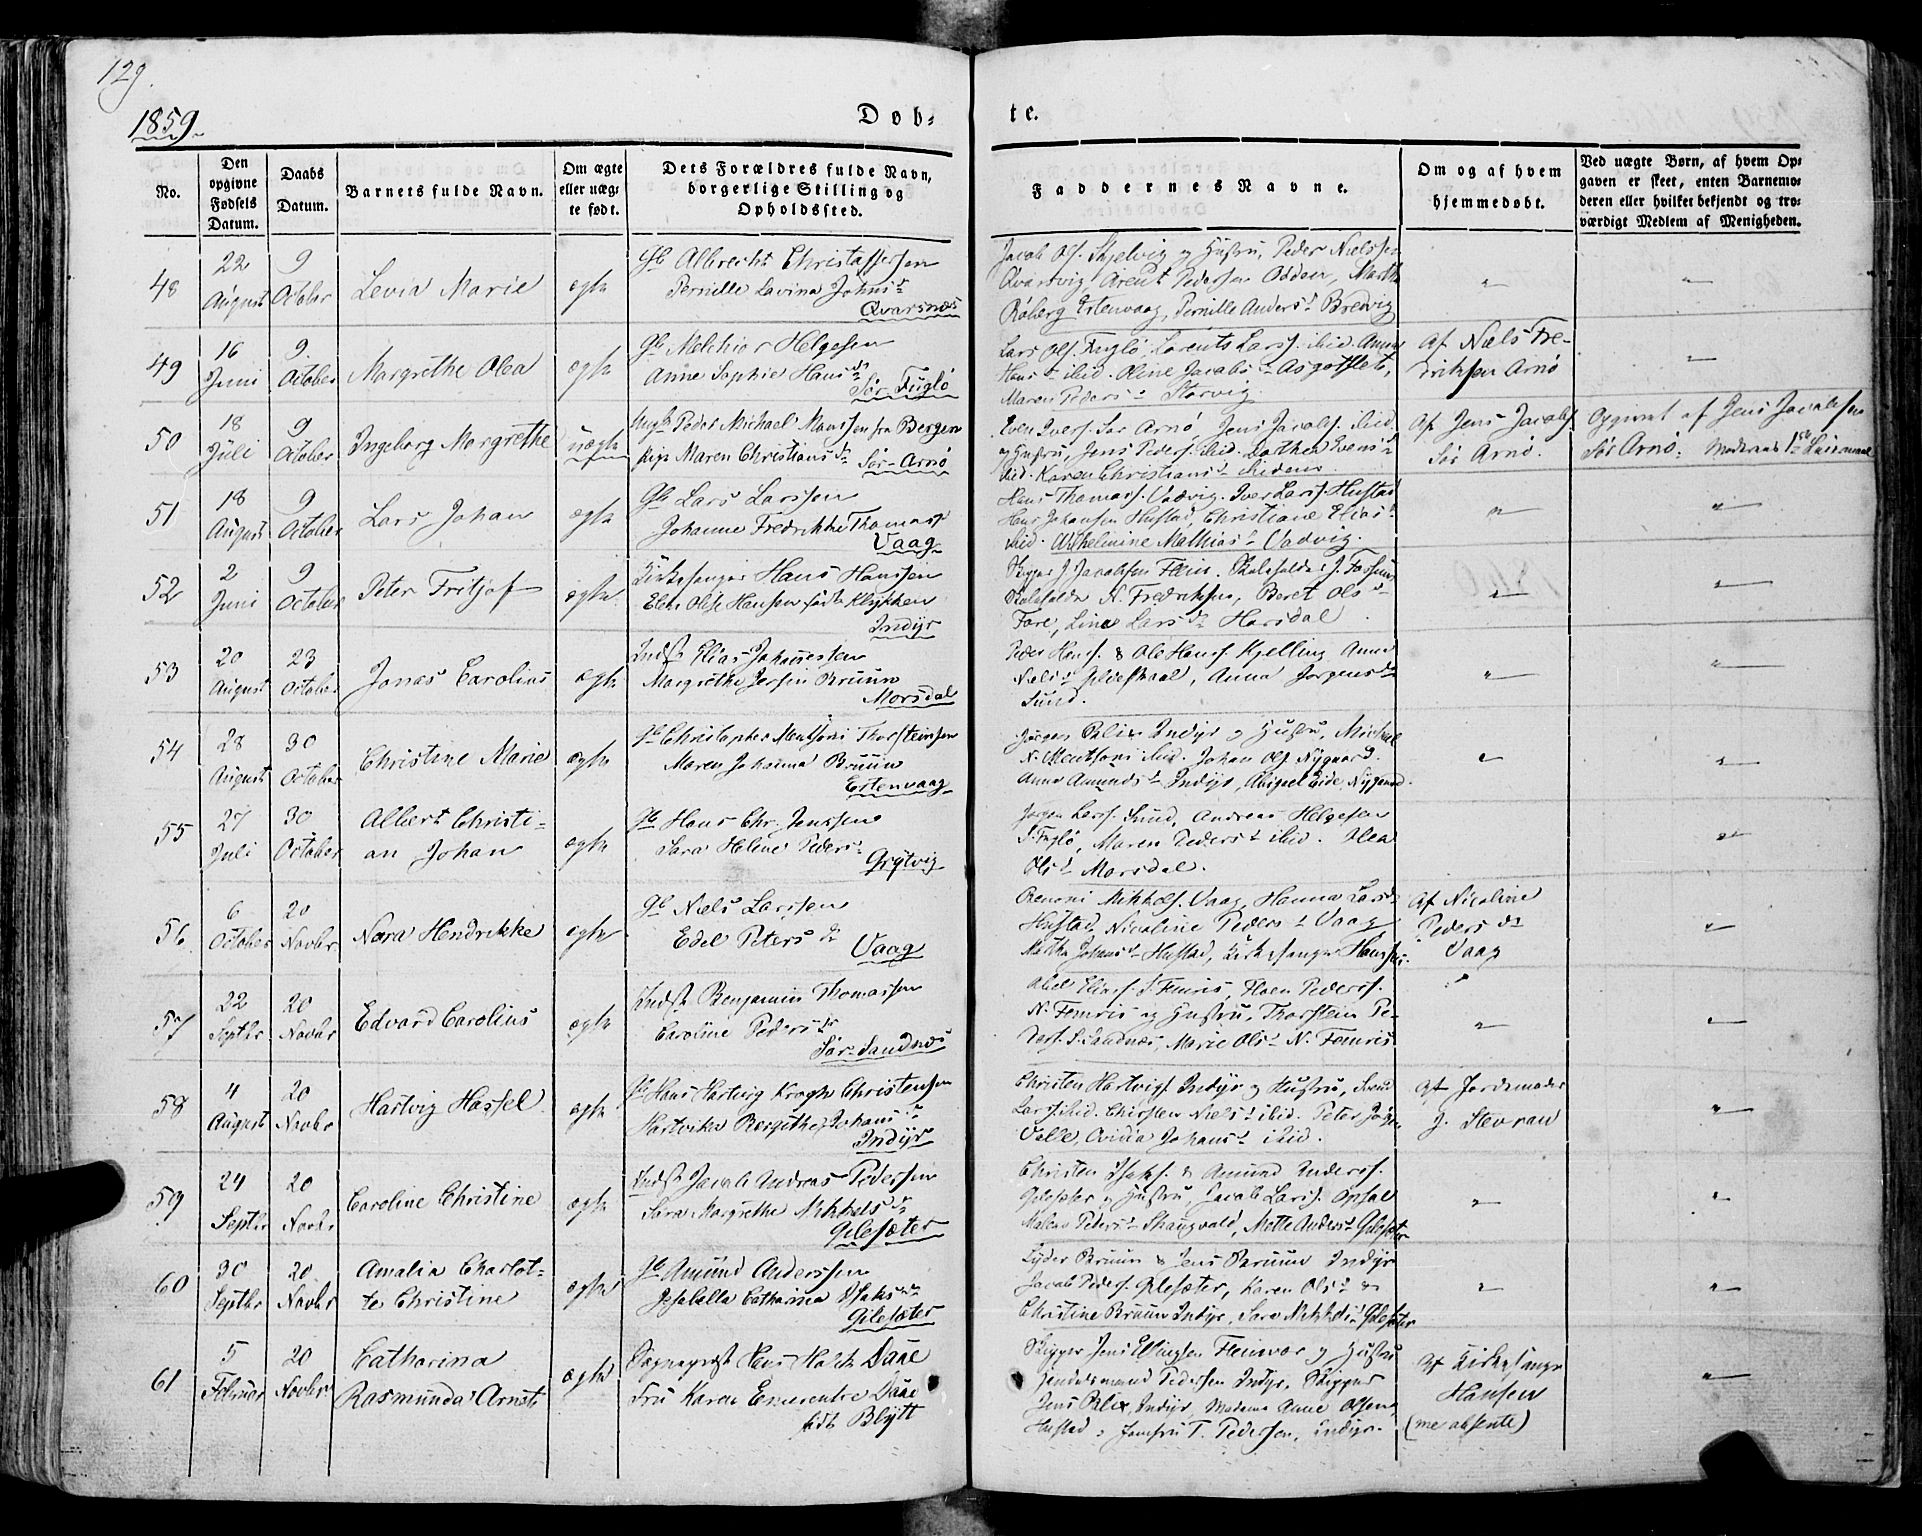 129.
1859.
Døb-
te.
No.
Den
opgivne
Fødsels
Datum.
Daabs
Datum.
Barnets fulde Navn.
Om ægte
eller uæg-
te født.
Dets Forældres fulde Navn,
borgerlige Stilling og
Opholdssted.
Faddernes Navne.
Om og af hvem
hjemmedøbt.
Ved uægte Børn, af hvem Op-
gaven er skeet, enten Barnemo-
deren eller hvilket bekjendt og tro-
værdigt Medlem af Menigheden.
48
22
August
9
October
Levia Marie
ægte
Gb Albrecht Christaffersen
Pernille Lavina Johns d.
Qvarsnæs
Jacob Ols. Skjelvig og Hustru, Peder Nielssen
Qvarsvig, Arent Pedersen Odden, Marth
Røberg Estenvaag, Pernille Anders d. Bredvig
49
16
Juni
9.
October
Margrethe Olea
ægte
Gb Melchior Helgesen
Anne Sophie Hans d.
Sør Fuglø
Lars Ols. Fuglø, Lorents Larss. ibid. Anne
Hans d. ibid. Oline Jacobs d. Asgotflet,
Maren Peders d. Storvig
Af Niels Fre-
driksen Arnø
50
18
Juli
9
October
Ingeborg Margrethe
uægte
Ungk Peder Michael Monssen fra Bergen
Pige Maren Christians d.
Sør-Arnø
Even Ivers. Sør Arnø, Jens Jacobs. ibid.
og Hustru, Jens Peders. ibid. Dorthea Evens d.
ibid. Karen Christians d. ibidem.
Af Jens Jacobs.
Sør Arnø.
Opgivet af Jens Jacobsen
Sør Arnø. Moderens 1ste Leiermaal
51
18
August
9
October
Lars Johan
ægte
Gb Lars Larssen
Johanne Fredrikke Thomas d.
Vaag
Hans Thomass. Vadvig. Iver Larss. Hustad
Hans Johansen Hustad, Christiane Elias d.
ibid. Wilhelmine Mathias d. Vadvig.
52
2
Juni
9
October
Peter Fritjof
ægte.
Kirkesanger Hans Hanssen
Elen Olse Hansen født Klykken
Indyr
Skipper J. Jacobsen Fleis. Skoleholder J. Forsund
Skoleholder N. Fredriksen, Beret Ols d.
Fore, Lina Lars d. Horsdal
53
20
August
23
October
Jonas Carolius
ægte
Indst. Elias Johannessen
Margrethe Jersin Bruun
Morsdal
Peder Hans. & Ole Hans. Kjelling Anne
Niels d. Gildeskaal, Anna Jørgens d.
Sund.
54
28
August
30
October
Christine Marie
ægte
Gb Christopher Mentsoni Thorsteinsen
Maren Johanna Bruun
Estenvaag
Jørgen Blix Indyr og Hustru, Michael
N. Mentsoni ibid. Johan Ols. Nygaard.
Anne Amunds d. Indyr, Abigael Eide, Nygaard.
55
27
Juli
30
October
Albert Christi-
an Johan
ægte
Gb Hans Chr. Jenssen
Sara Helene Peders d.
Grytvig
Jørgen Larss. Sund, Andreas Helgesen
S. Fuglø, Maren Peders d. ibid. Elea
Ols d. Morsdal.
56.
6
October
20
Novbr
Nora Hendrikke
ægte
Gb Niels Larssen
Edel Peters d.
Vaag
Benoni Mikkels. Vaag, Hanna Lars d.
Hustad, Nicoline Peders d. Vaag
Martha Johans d. Hustad, Kirkesanger Hanssen.
Af Nicoline
Peders d.
Vaag
57
22
Septbr
20
Novbr
Edvard Carolius
ægte
Indst. Benjamin Thomassen
Caroline Peders d.
Sør-Sandnæs
Abel Elias. S. Femris, Elsen Pederss.
N. Femris og Hustru, Thorstein Pe-
ders. S. Sandnæs, Marie Ols d. N. Femris
58
4
August
20
Novbr
Hartvig Hassel
ægte
Gb Hans Hartvig Krogh Christensen
Hartvika Bergithe Johans d.
Indyr
Christen Hartvigs. Indyr og Hustru, Svend
Larss. ibid. Chirsten Niels d. ibid. Peter Jørgn
Valle, Ovidia Johans d. ibid.
Af Jordemoder
J. Stenran
59
24
Septbr
20
Novbr
Caroline Christine
ægte
Indst. Jacob Andreas Pedersen
Sara Margrethe Mikkels d.
Gilesæter
Christen Isaks. & Amund Anderss.
Gilesæter og Hustru, Jacob Larss. Opsal
Malene Peders d. Skaugvold, Mette Anders d. Gilesæter
60
30
Septbr
20
Novbr
Amalia Charlot-
te Christine
ægte
Gb Amund Anderssen
Isabella Catharina Isaks d.
Gilesæter
Lyder Bruun & Jens Bruun Indyr
Jacob Peders. Gilesæter, Karen Ols d. &
Christine Bruun Indyr, Sara Mikkels d. Gilesæter
61
5
Februar
20
Novbr
Catharina
Rasmunda Arnete
ægte
Sogneprest Hans Holck Daae
Fru Karen Emerentze Daae
født Blytt
Skipper Jens Ellingsen Fleinvær og Hustru
Handelsmand Pedersen Indyr, Skipper
Jens Blix, Indyr, Madame Anne Olsen,
Hustad, Jomfru T. Pedersen, Indyr.
Af Kirkesanger
Hansen
(me absente)